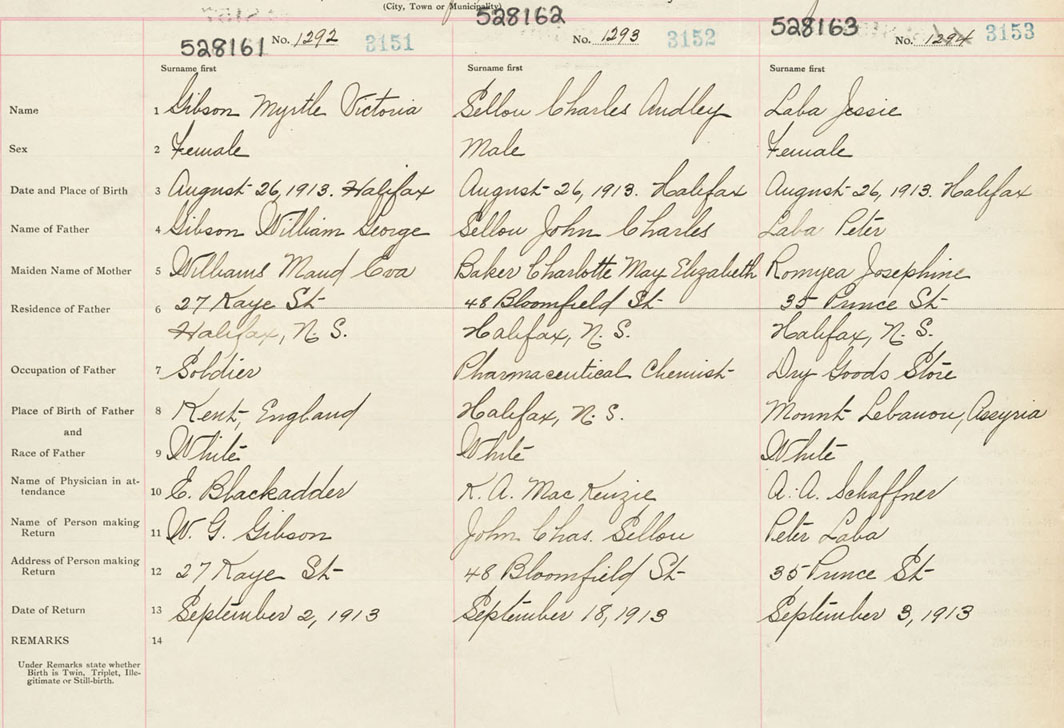 (City, Town or Municipality)
528161 No. 1292 3151 528162 No. 1293 3152 528163 No. 1294 3153
Surname first Surname first Surname first
Name 1 Gibson Myrtle Victoria Sellou Charles Audley Laba Jessie
Sex 2 Female Male Female
Date and Place of Birth 3 August 26, 1913. Halifax August 26, 1913. Halifax August 26, 1913. Halifax
Name of Father 4 Gibson William George Sellou John Charles Laba Peter
Maiden Name of Mother 5 Williams Maud Eva Baker Charlotte May Elizabeth Romyea Josephine
Residence of Father 6 27 Kaye St 48 Bloomfield St 35 Prince St
Halifax, N.S. Halifax, N.S. Halifax, N.S.
Occupation of Father 7 Soldier Pharmaceutical Chemist Dry Goods Store
Place of Birth of Father 8 Kent, England Halifax, N.S. Mount Lebanon, Assyria
and
Race of Father 9 White White White
Name of Physician in at-
tendance 10 E. Blackadder K. A. MacKenzie A. A. Schaffner
Name of Person making
Return 11 W. G. Gibson John Chas. Sellou Peter Laba
Address of Person making
Return 12 27 Kaye St 48 Bloomfield St 35 Prince St
Date of Return 13 September 2, 1913 September 18, 1913 September 3, 1913
REMARKS 14
Under Remarks state whether
Birth is Twin, Triplet, Ille-
gitimate or Still-birth.